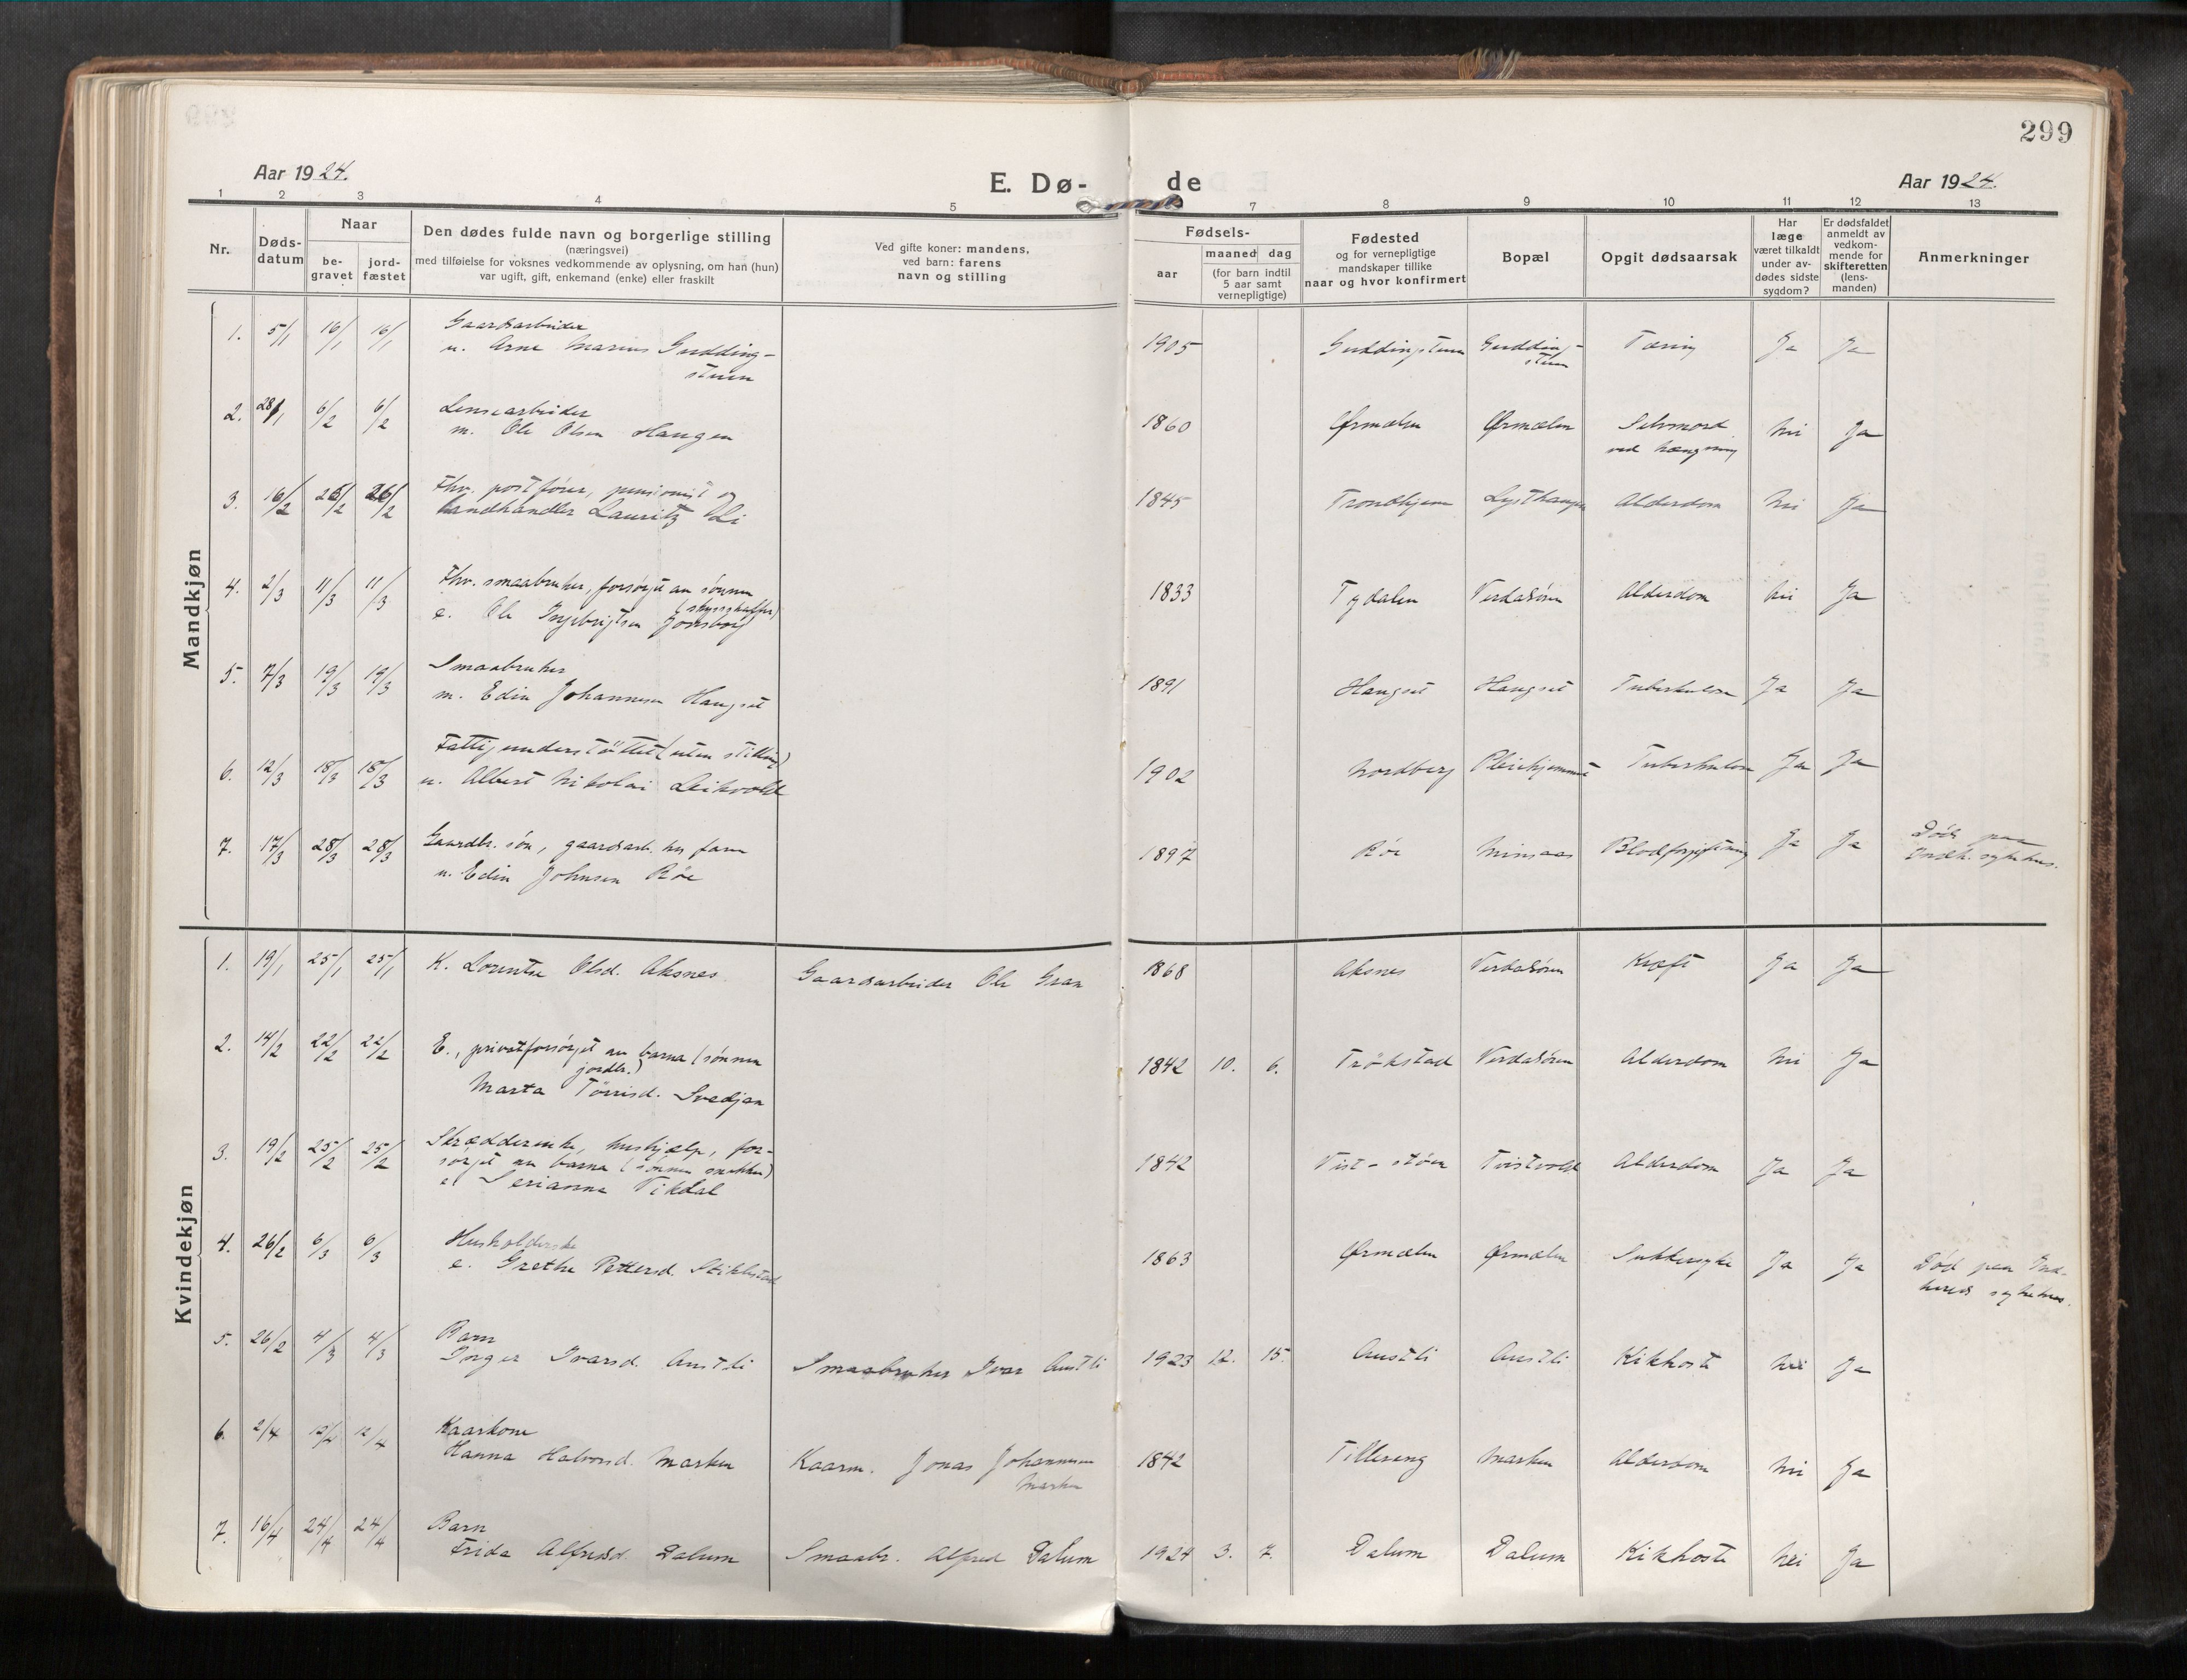 299
Aar 1924.
E. Dø-
de
Aar 1924.
1 2 3 4 5 7 8 9 10 11 12 13
Nr.
Døds-
datum
Naar
be-
gravet
jord-
fæstet
Den dødes fulde navn og borgerlige stilling
(næringsvei)
med tilføielse for voksnes vedkommende av oplysning, om han (hun)
var ugift, gift, enkemand (enke) eller fraskilt
Ved gifte koner: mandens,
ved barn: farens
navn og stilling
Fødsels-
aar
maaned dag
(for barn indtil
5 aar samt
vernepligtige)
Fødested
og for vernepligtige
mandskaper tillike
naar og hvor konfirmert
Bopæl
Opgit dødsaarsak
Har
læge
været tilkaldt
under av-
dødes sidste
sygdom?
Er dødsfaldet
anmeldt av
vedkom-
mende for
skifteretten
(lens-
manden)
Anmerkninger
Mandkjøn
1. 5/1 16/1 16/1 Gaardsarbeider
u. Arne Marius Gudding-
stuen
1905 Guddingstuen Gudding-
stuen
Tæring Ja Ja
2. 28/1 6/2 6/2 Lensearbeider
m. Ole Olsen Haugen
1860 Ørmelen Ørmelen Selvmord
ved hængning
Nei Ja
3. 16/2 26/2 26/2 Fhv. postfører, pensionist og
landhandler Lauritz Li
1845 Trondhjem Lysthaugen Alderdom Nei Ja
4. 2/3 11/3 11/3 Fhv. smaabruker, forsørget av sønnen
(skysskaffer)
e. Ole Ingebrigtsen Jonsborg
1833 Tydalen Verdalsøren Alderdom Nei Ja
5. 7/3 19/3 19/3 Smaabruker
m. Edin Johannesen Haugset
1891 Haugset Haugset Tuberkulose Ja Ja
6. 12/3 18/3 18/3 Fattigunderstöttet (uten stilling)
u. Albert Nikolai Leikvold
1902 Nordberg Pleiehjemmet Tuberkulose Ja Ja
7. 17/3 28/3 28/3 Gaardbr. søn, gaardsarb. hos faren
u. Edin Johnsen Røe
1897 Røe Minsaas Blodforgiftning Ja Ja Död paa
Indh. sykehus.
Kvindekjøn
1. 19/1 25/1 25/1 K. Lorentse Olsd. Aksnes Gaardsarbeider Ole Gran 1868 Aksnes Verdalsøren Kræft Ja Ja
2. 14/2 22/2 22/2 E., privatforsørget av barna (sønnen
jordbr.)
Marta Tørrisd. Svedjan
1842 10. 6. Trøkstad Verdalsøren Alderdom Nei Ja
3. 19/2 25/2 25/2 Skrædderenke, hushjælp, for-
sørget av barna (sønnen snekker)
e. Serianna Vikdal
1842 Vist-støen Tvistvold Alderdom Ja Ja
4. 26/2 6/3 6/3 Husholderske
e. Grethe Pettersd. Stiklestad
1863 Ørmelen Ørmelen Sukkersyke Ja Ja Död paa Ind-
hereds sykehus.
5. 26/2 4/3 4/3 Barn
Inger Ivarsd. Austli
Smaabruker Ivar Austli 1923 12. 15. Austli Austli Kikhoste Nei Ja
6. 2/4 12/4 12/4 Kaarkone
Hanna Halvorsd. Marken
Kaarm. Jonas Johannesen
Marken
1842 Tillereng Marken Alderdom Nei Ja
7. 16/4 24/4 24/4 Barn
Frida Alfredsd. Dalum
Smaabr. Alfred Dalum 1924 3. 7. Dalum Dalum Kikhoste Nei Ja